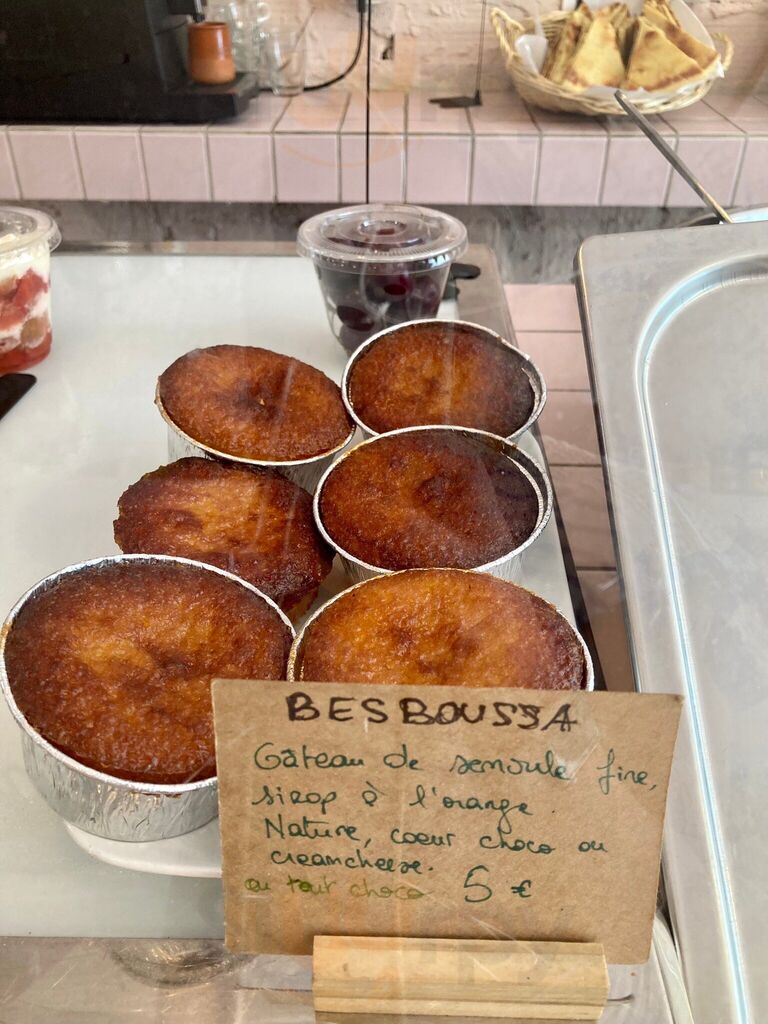 BESBOUSSA
Gâteau de semoule fine,
sirop à l'orange.
Nature, coeur choco ou
creamcheese.
ou tout choco 5 €